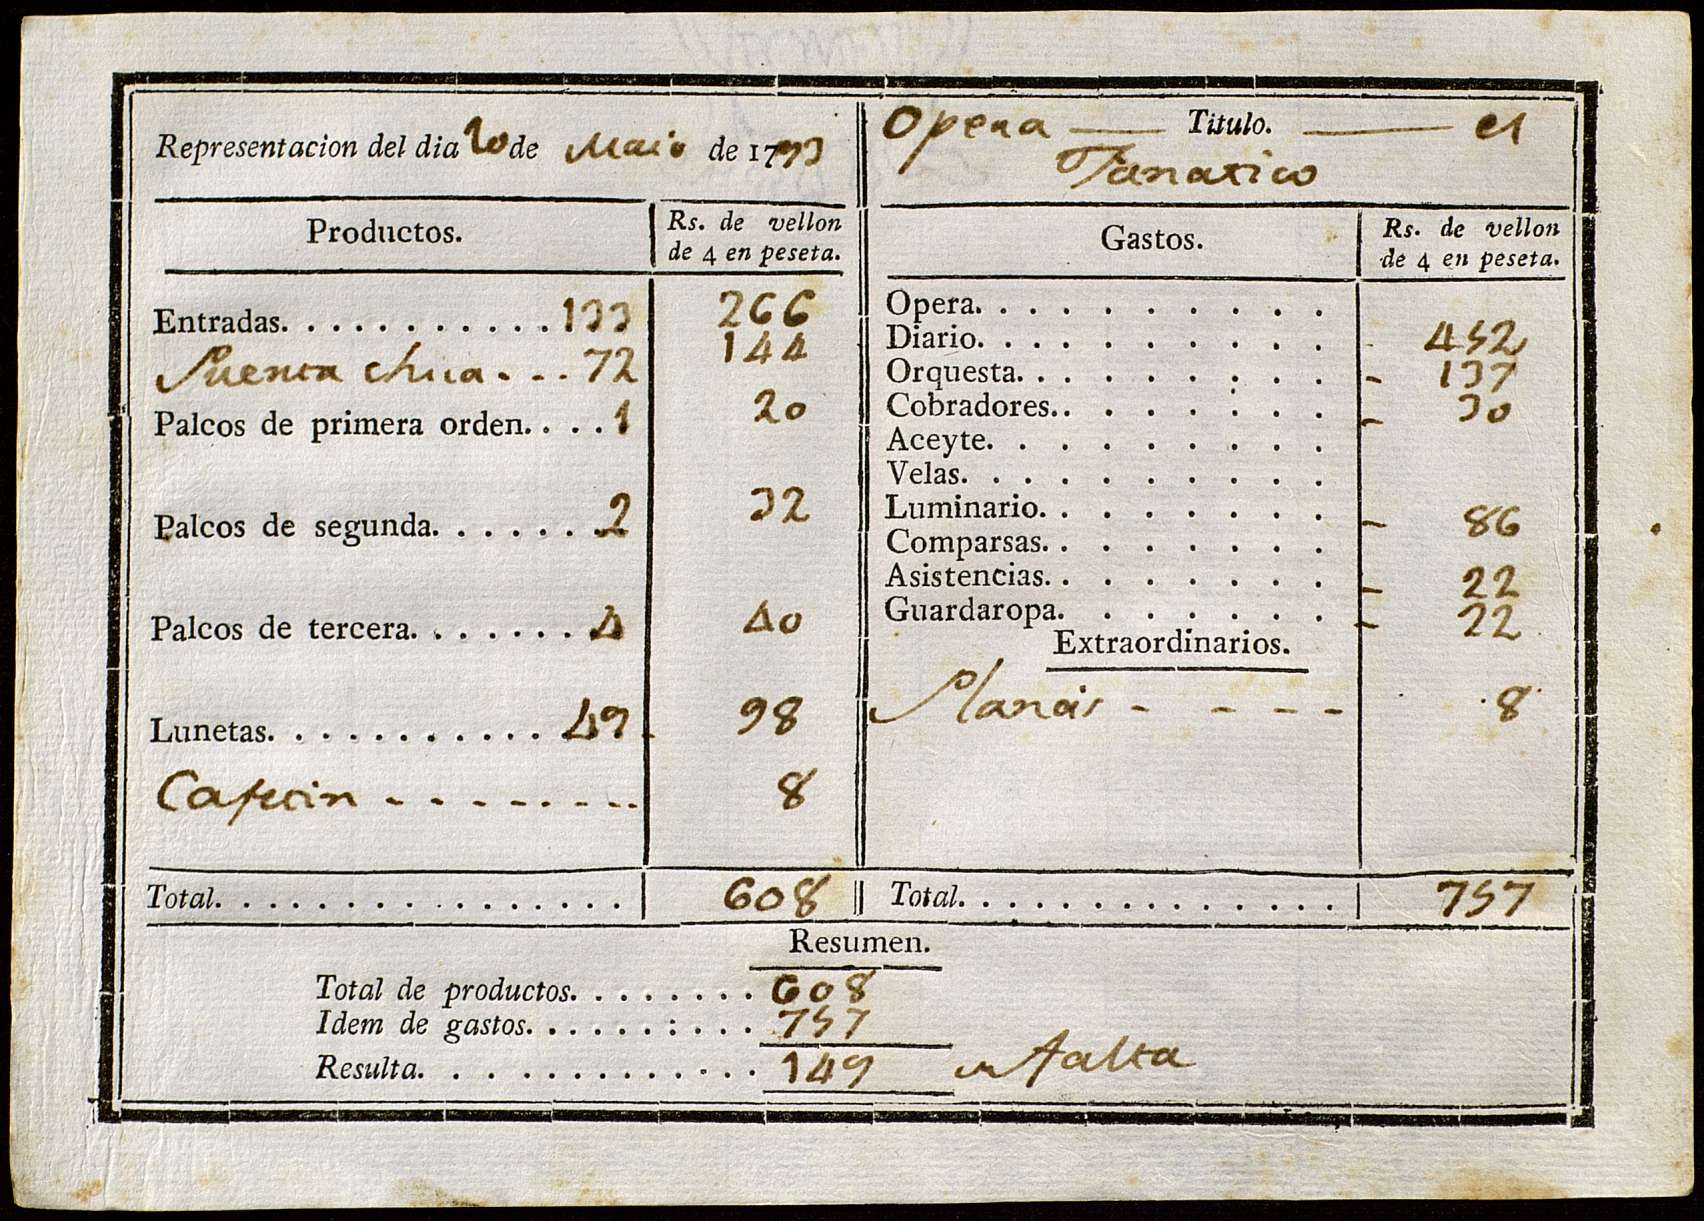 Representacion del dia 20 de Maio de 1793
Opera — Titulo. — el
Fanatico
Productos.
Rs. de vellon
de 4 en peseta.
Entradas. . . . . . . . . . . 133 266
Puerta chica . - - 72 144
Palcos de primera orden. . . . 1 20
Palcos de segunda. . . . . . . 2 32
Palcos de tercera. . . . . . . 4 40
Lunetas. . . . . . . . . . . 49 98
Cafecin - - - - - - - - 8
Total. . . . . . . . . . . . . . . . 608
Gastos.
Rs. de vellon
de 4 en peseta.
Opera. . . . . . . . . .
Diario. . . . . . . . . . 452
Orquesta. . . . . . . . . - 137
Cobradores. . . . . . . . - 30
Aceyte. . . . . . . . . .
Velas. . . . . . . . . . .
Luminario. . . . . . . . - 86
Comparsas. . . . . . . .
Asistencias. . . . . . . . - 22
Guardaropa. . . . . . . - 22
Extraordinarios.
- - - - - 8
Total. . . . . . . . . . . . . . . 757
Resumen.
Total de productos. . . . . . . . 608
Idem de gastos. . . . . . . . . 757
Resulta. . . . . . . . . . . . . 149 en falta